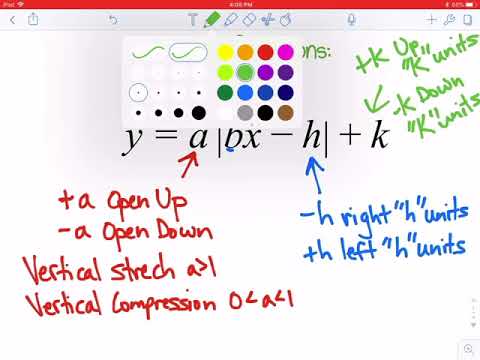 iPad
4:06 PM
66%
ons:
+K Up "K" units
-K Down "K" units
y = a |bx − h| + k
+a Open Up
-a Open Down
Vertical strech a>1
Vertical Compression 0<a<1
-h right "h" units
+h left "h" units